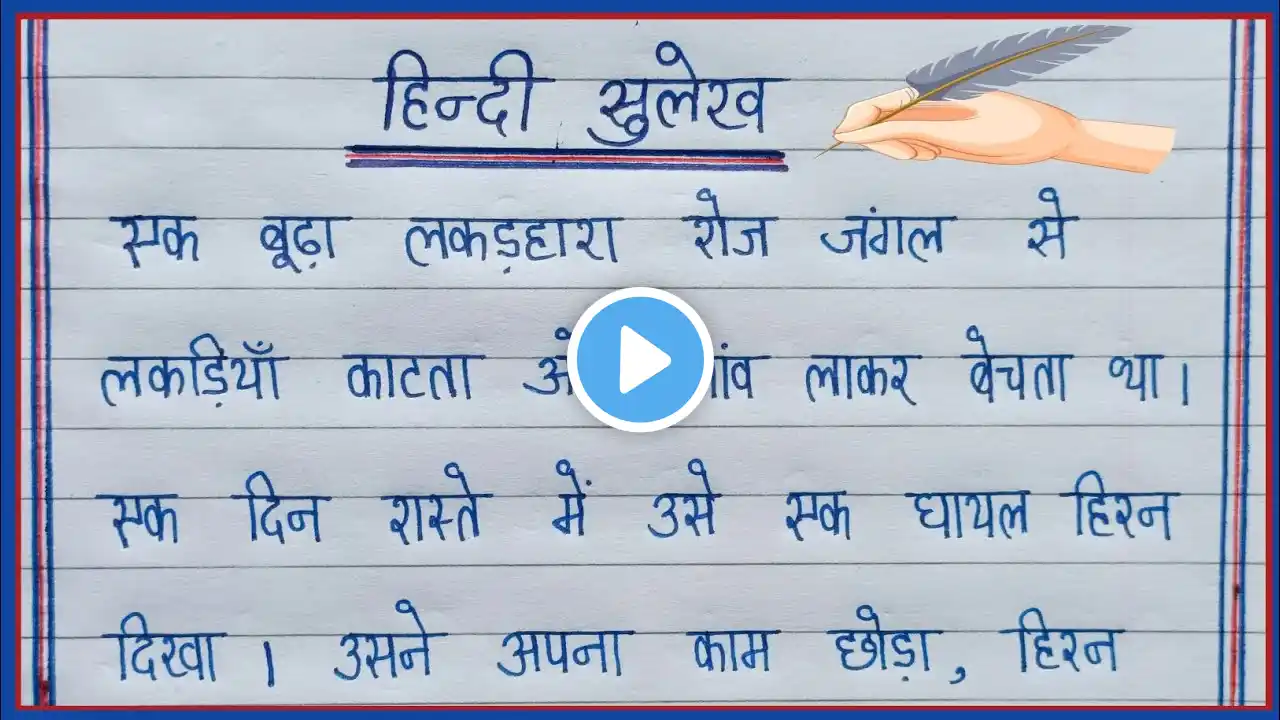 हिन्दी सुलेख
एक बूढ़ा लकड़हारा रोज जंगल से
लकड़ियाँ काटता लाकर बेचता था।
एक दिन रास्ते में उसे एक घायल हिरन
दिखा । उसने अपना काम छोड़ा, हिरन